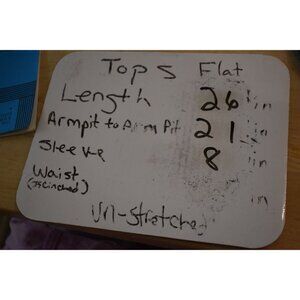 Tops Flat
Length 26 in
Armpit to Arm Pit 21 in
Sleeve 8 in
Waist in
(if cinched)
Un-stretched